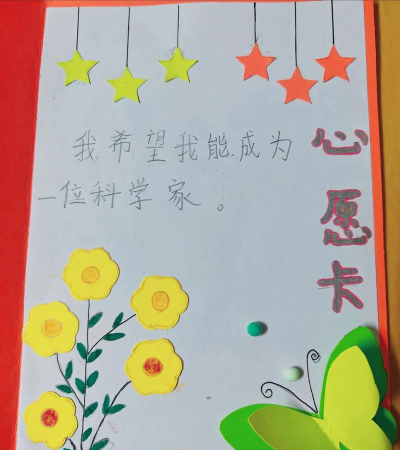 我希望我能成为
一位科学家。
心愿卡